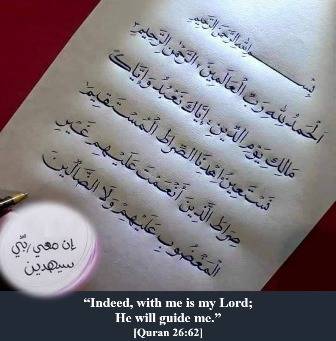 بسم الله الرحمن الرحيم
الحمد لله رب العالمين الرحمن الرحيم
مالك يوم الدين إياك نعبد وإياك
نستعين اهدنا الصراط المستقيم
صراط الذين أنعمت عليهم غير
المغضوب عليهم ولا الضالين
إن معي ربي
سيهدين
“Indeed, with me is my Lord;
He will guide me.”
[Quran 26:62]